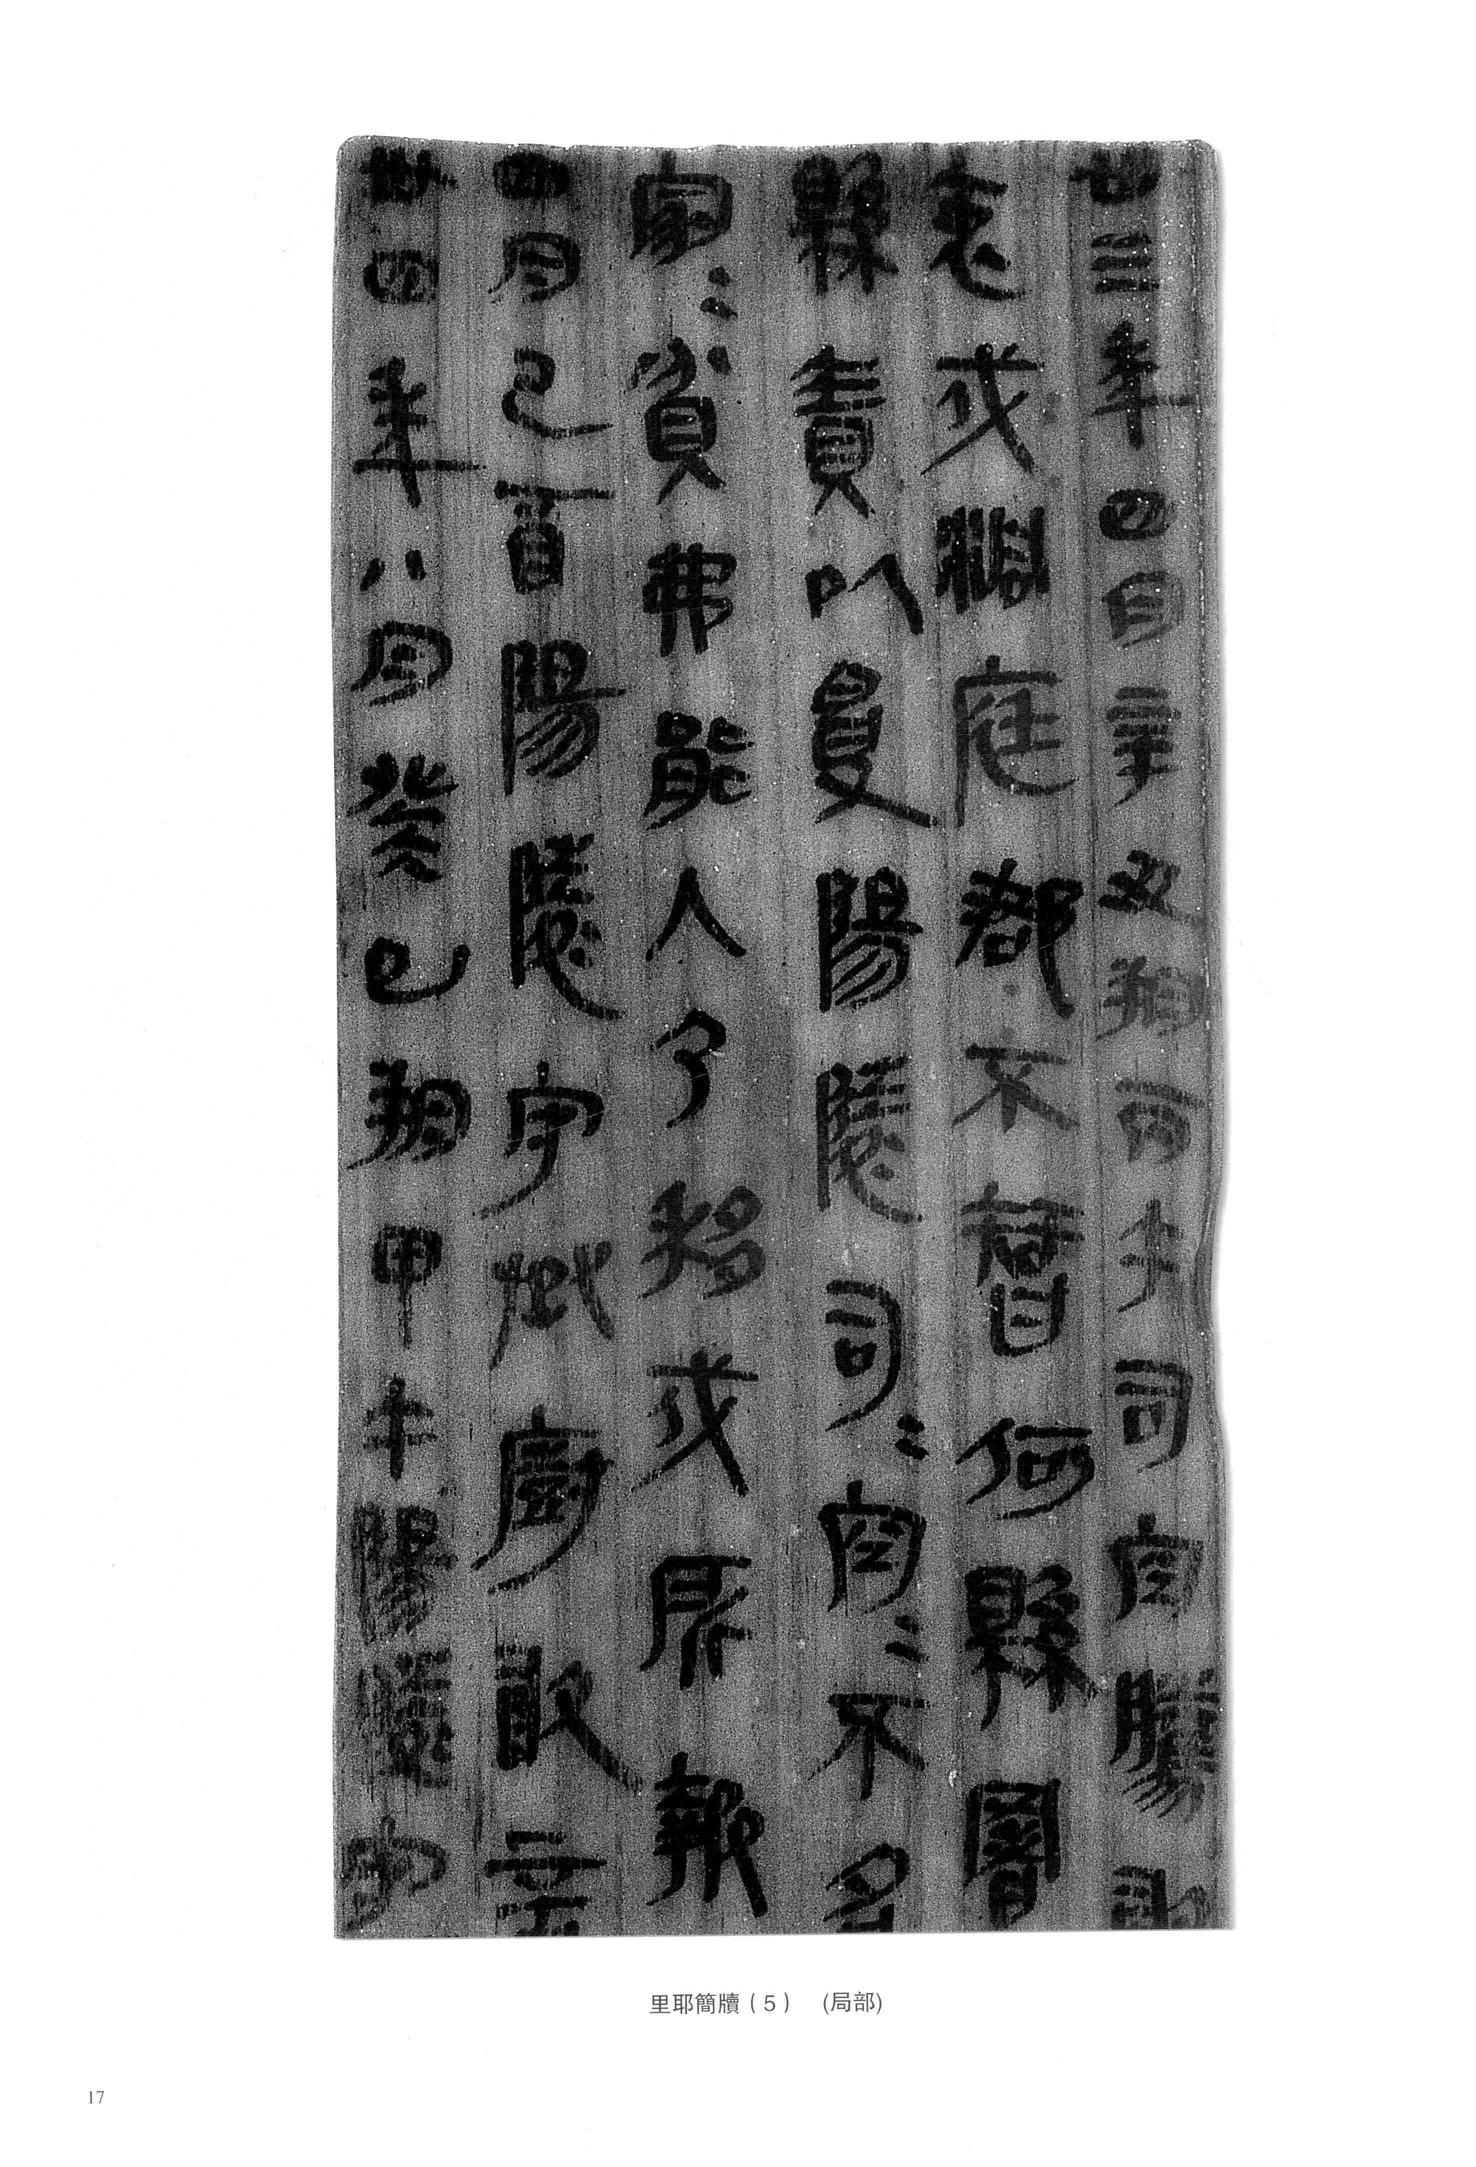 卅三年四月辛丑朔丙午司空騰敢
衷戍洞庭郡不智何縣署
縣責以受陽陵司=空=不名
家=貧弗能入乃移戍所報
四月己酉陽陵守丞廚敢言
卅四年八月癸巳朔甲午陽陵守
里耶簡牘（5）　(局部)
17